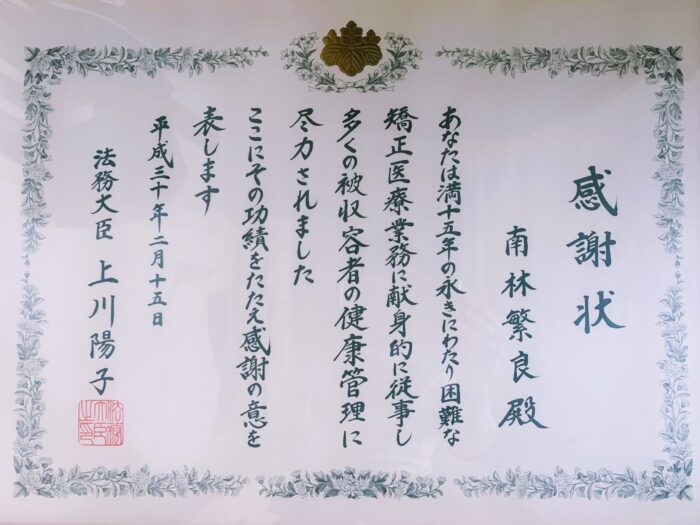 感謝状
南林繁良殿
あなたは満十五年の永きにわたり困難な
矯正医療業務に献身的に従事し
多くの被収容者の健康管理に
尽力されました
ここにその功績をたたえ感謝の意を
表します
平成三十年二月十五日
法務大臣 上川陽子
法務大臣之印